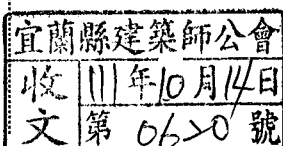 宜蘭縣建築師公會
收文
111年10月14日
第 0620 號